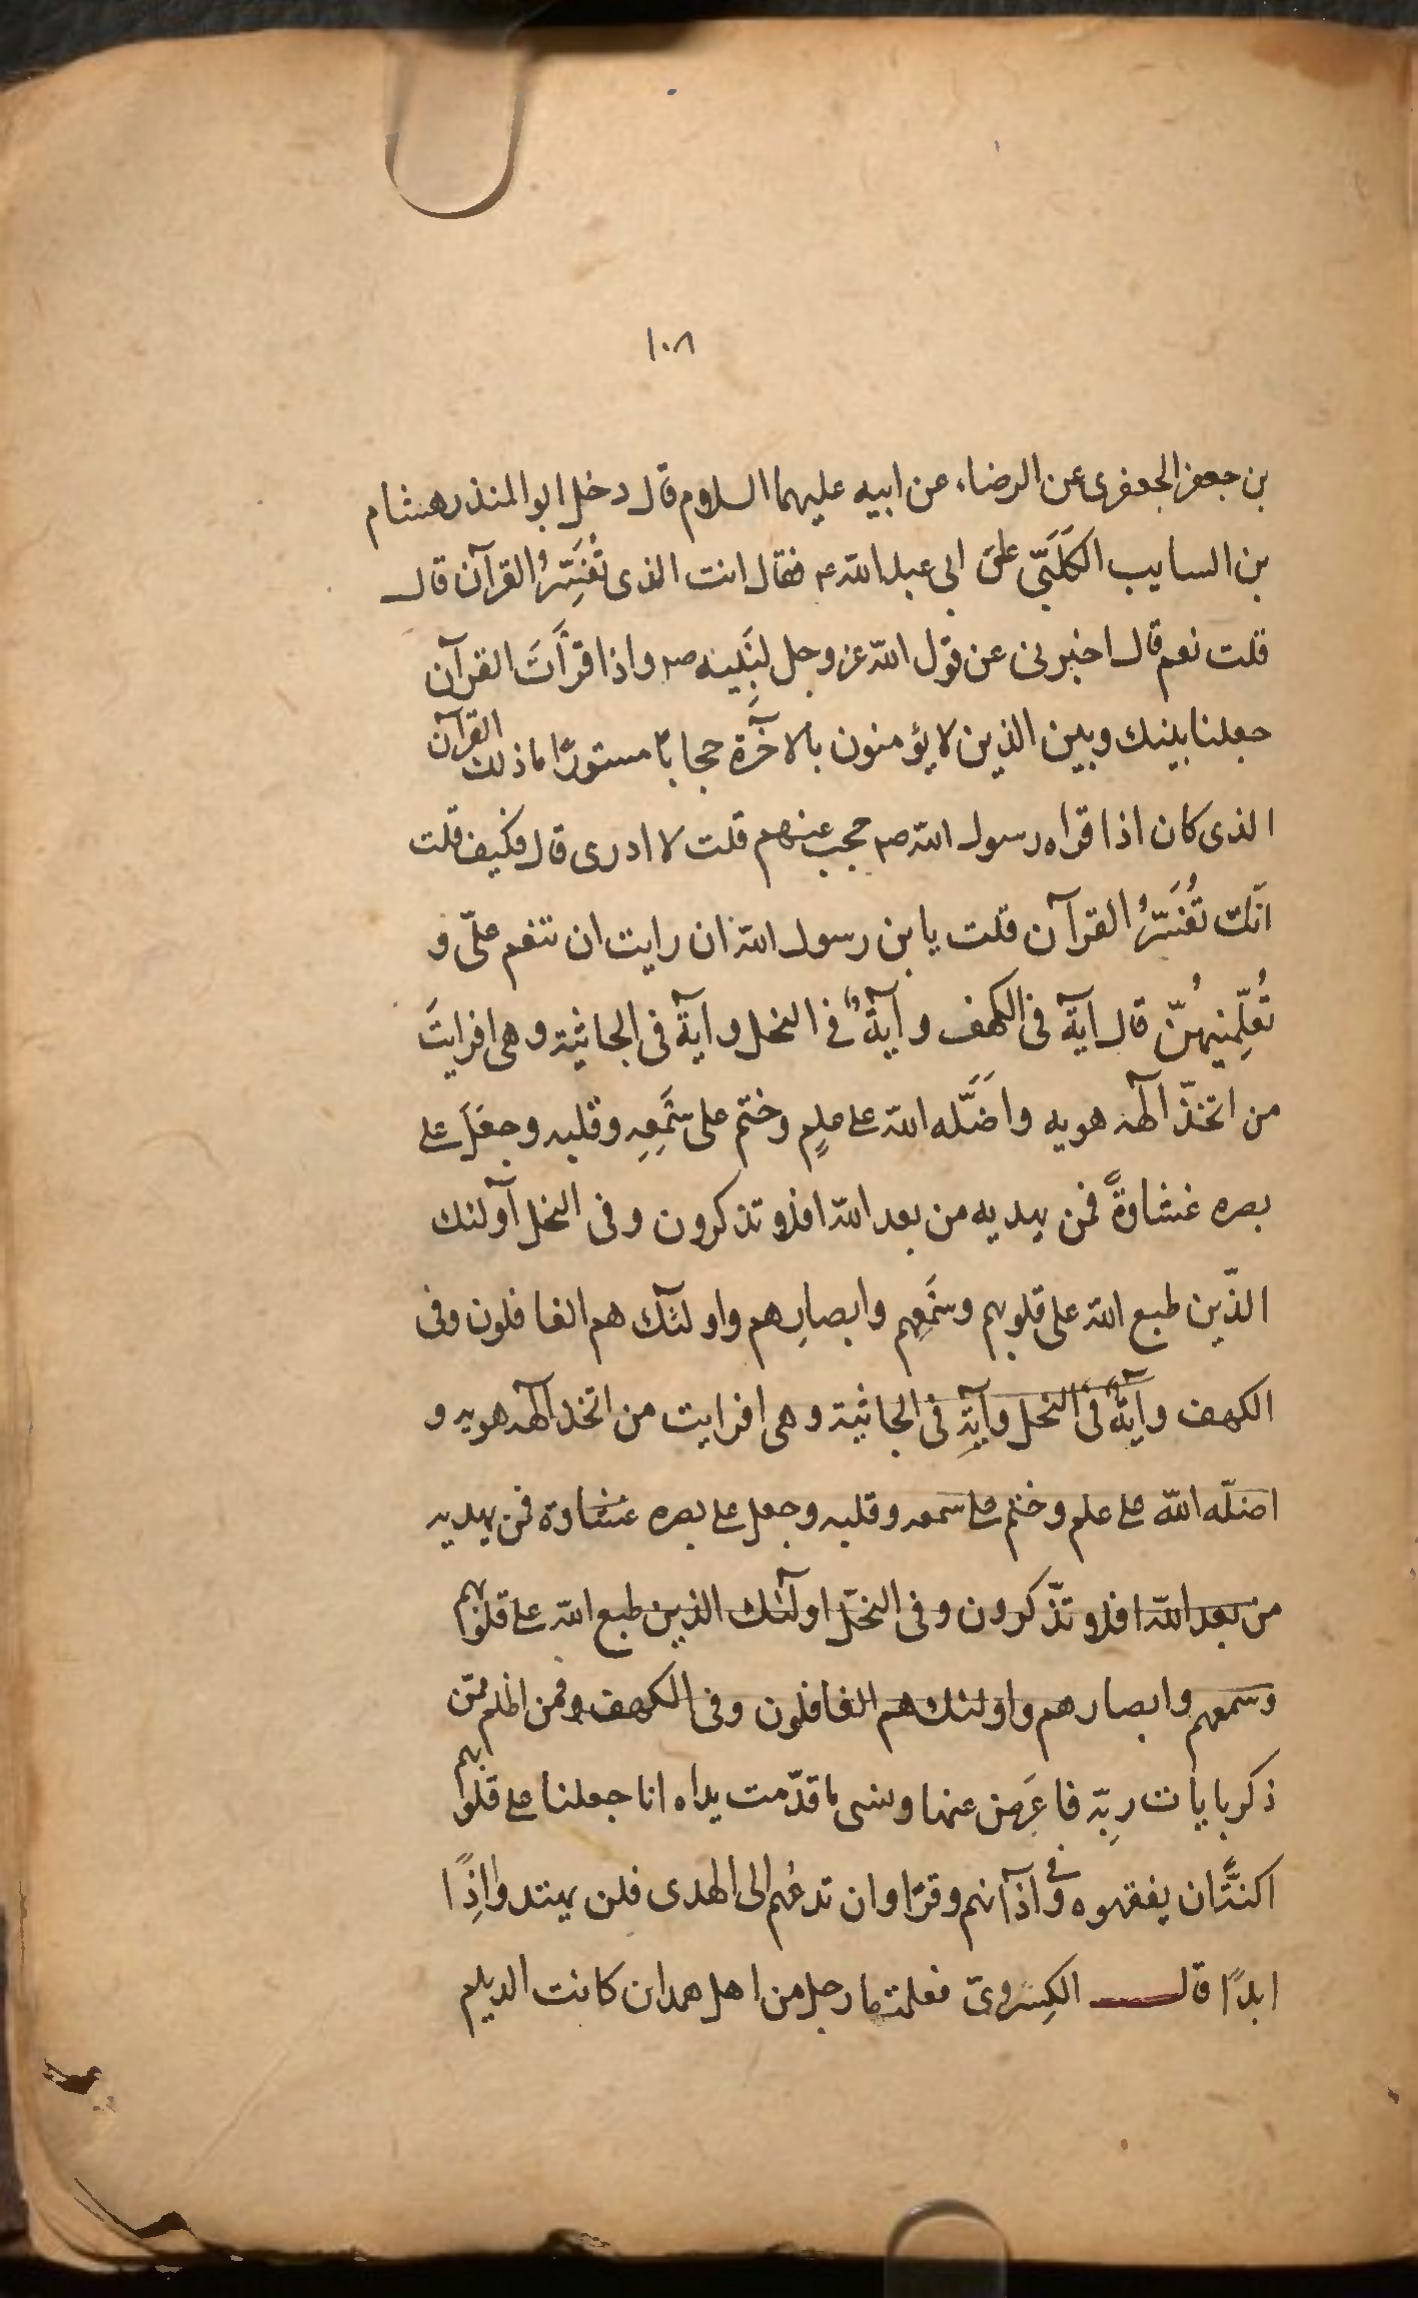 ١٠٨
بن جعفر الجعفرى عن الرضاء عن ابيه عليهما السلام قال دخل ابو المنذر هشام
بن السايب الكَلَبّى علىَ ابى عبد الله ع فقال انت الذى تُفَسِّرُ القرآن قال
قلت نعم قال اخبرنى عن قول الله عز وجل لنبيه ص واذا قرَأتَ القرآن
جعلنا بينك وبين الذين لا يؤمنون بالآخرة حجاباً مستوراً ما ذلك القرآن
الذى كان اذا قراه رسول الله ص حجب عنهم قلت لا ادرى قال فكيف قلت
انّك تُفَسّرُ القرآن قلت يا بن رسول الله ان رايت ان تنعم علىّ و
تُعلِّمنيهُنّ قال آية فى الكهف وآيةٌ فى النحل وآية فى الجاثية وهى افرايتَ
من اتخذّ الهه هويه واضَلَّه الله على علمٍ وختم على سَمَعِهِ وقلبه وجعَلَ على
بصره غشاوةً فمن يهديه من بعد الله افلا تذكرون وفى النحل آولئك
الذّين طبع الله على قلوبهم وسَمَعِهم وابصارِهم واولئك هم الغافلون وفى
الكهف وآيةٌ فى النحل وآيةِ فى الجاثية وهى افرايت من اتخذ الهه هويه و
اضلّه الله على علم وختم على سمعه وقلبه وجعل على بصره غشاوة فمن يهديه
من بعد الله افلا تذّكرون وفى النحل اولئك الذين طبع الله على قلوبهم
وسمعهم وابصارهم واولئك هم الغافلون وفى الكهف ومن اظلم ممّن
ذكر بايات ربِّه فاعَرضَ عنها ونسى ما قدّمت يداه انا جعلنا على قلوبهم
اكنةًّ ان يفقهوه وفى آذآنهم وقرًا وان تدعُهم الى الهدى فلن يهتدوا اذِاً
ابدًا قال الكِسَروىّ فعلمتها رجل من اهل همدان كانت الديلم